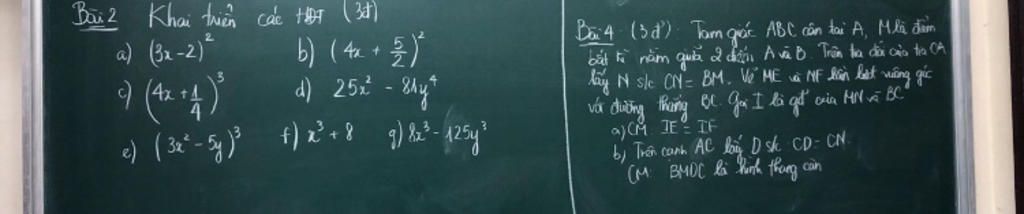 Bài 2 Khai triển các HĐT (3đ)
a) (3x-2)² b) (4x + 5/2)²
c) (4x + 1/4)³ d) 25x² - 81y⁴
e) (3x² - 5y)³ f) x³ + 8 g) 8x³ - 125y³
Bài 4 : (3đ) Tam giác ABC cân tại A, M là điểm
bất kì nằm giữa 2 điểm A và B. Trên tia đối của tia CA
lấy N s/c CN = BM. Vẽ ME và NF lần lượt vuông góc
với đường thẳng BC. Gọi I là gđ của MN và BC
a) CM IE = IF
b) Trên cạnh AC lấy D s/c CD = CN.
CM: BMDC là hình thang cân